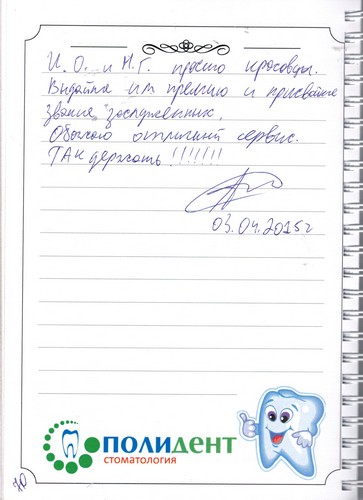 И. О. и М. Г. просто красовцы.
Выдайте им премию и присвойте
звания заслуженных.
Обожаю отличний сервис.
ТАК держать!!!!!!!
03.04.2015г
ПОЛИДЕНТ
СТОМАТОЛОГИЯ
70